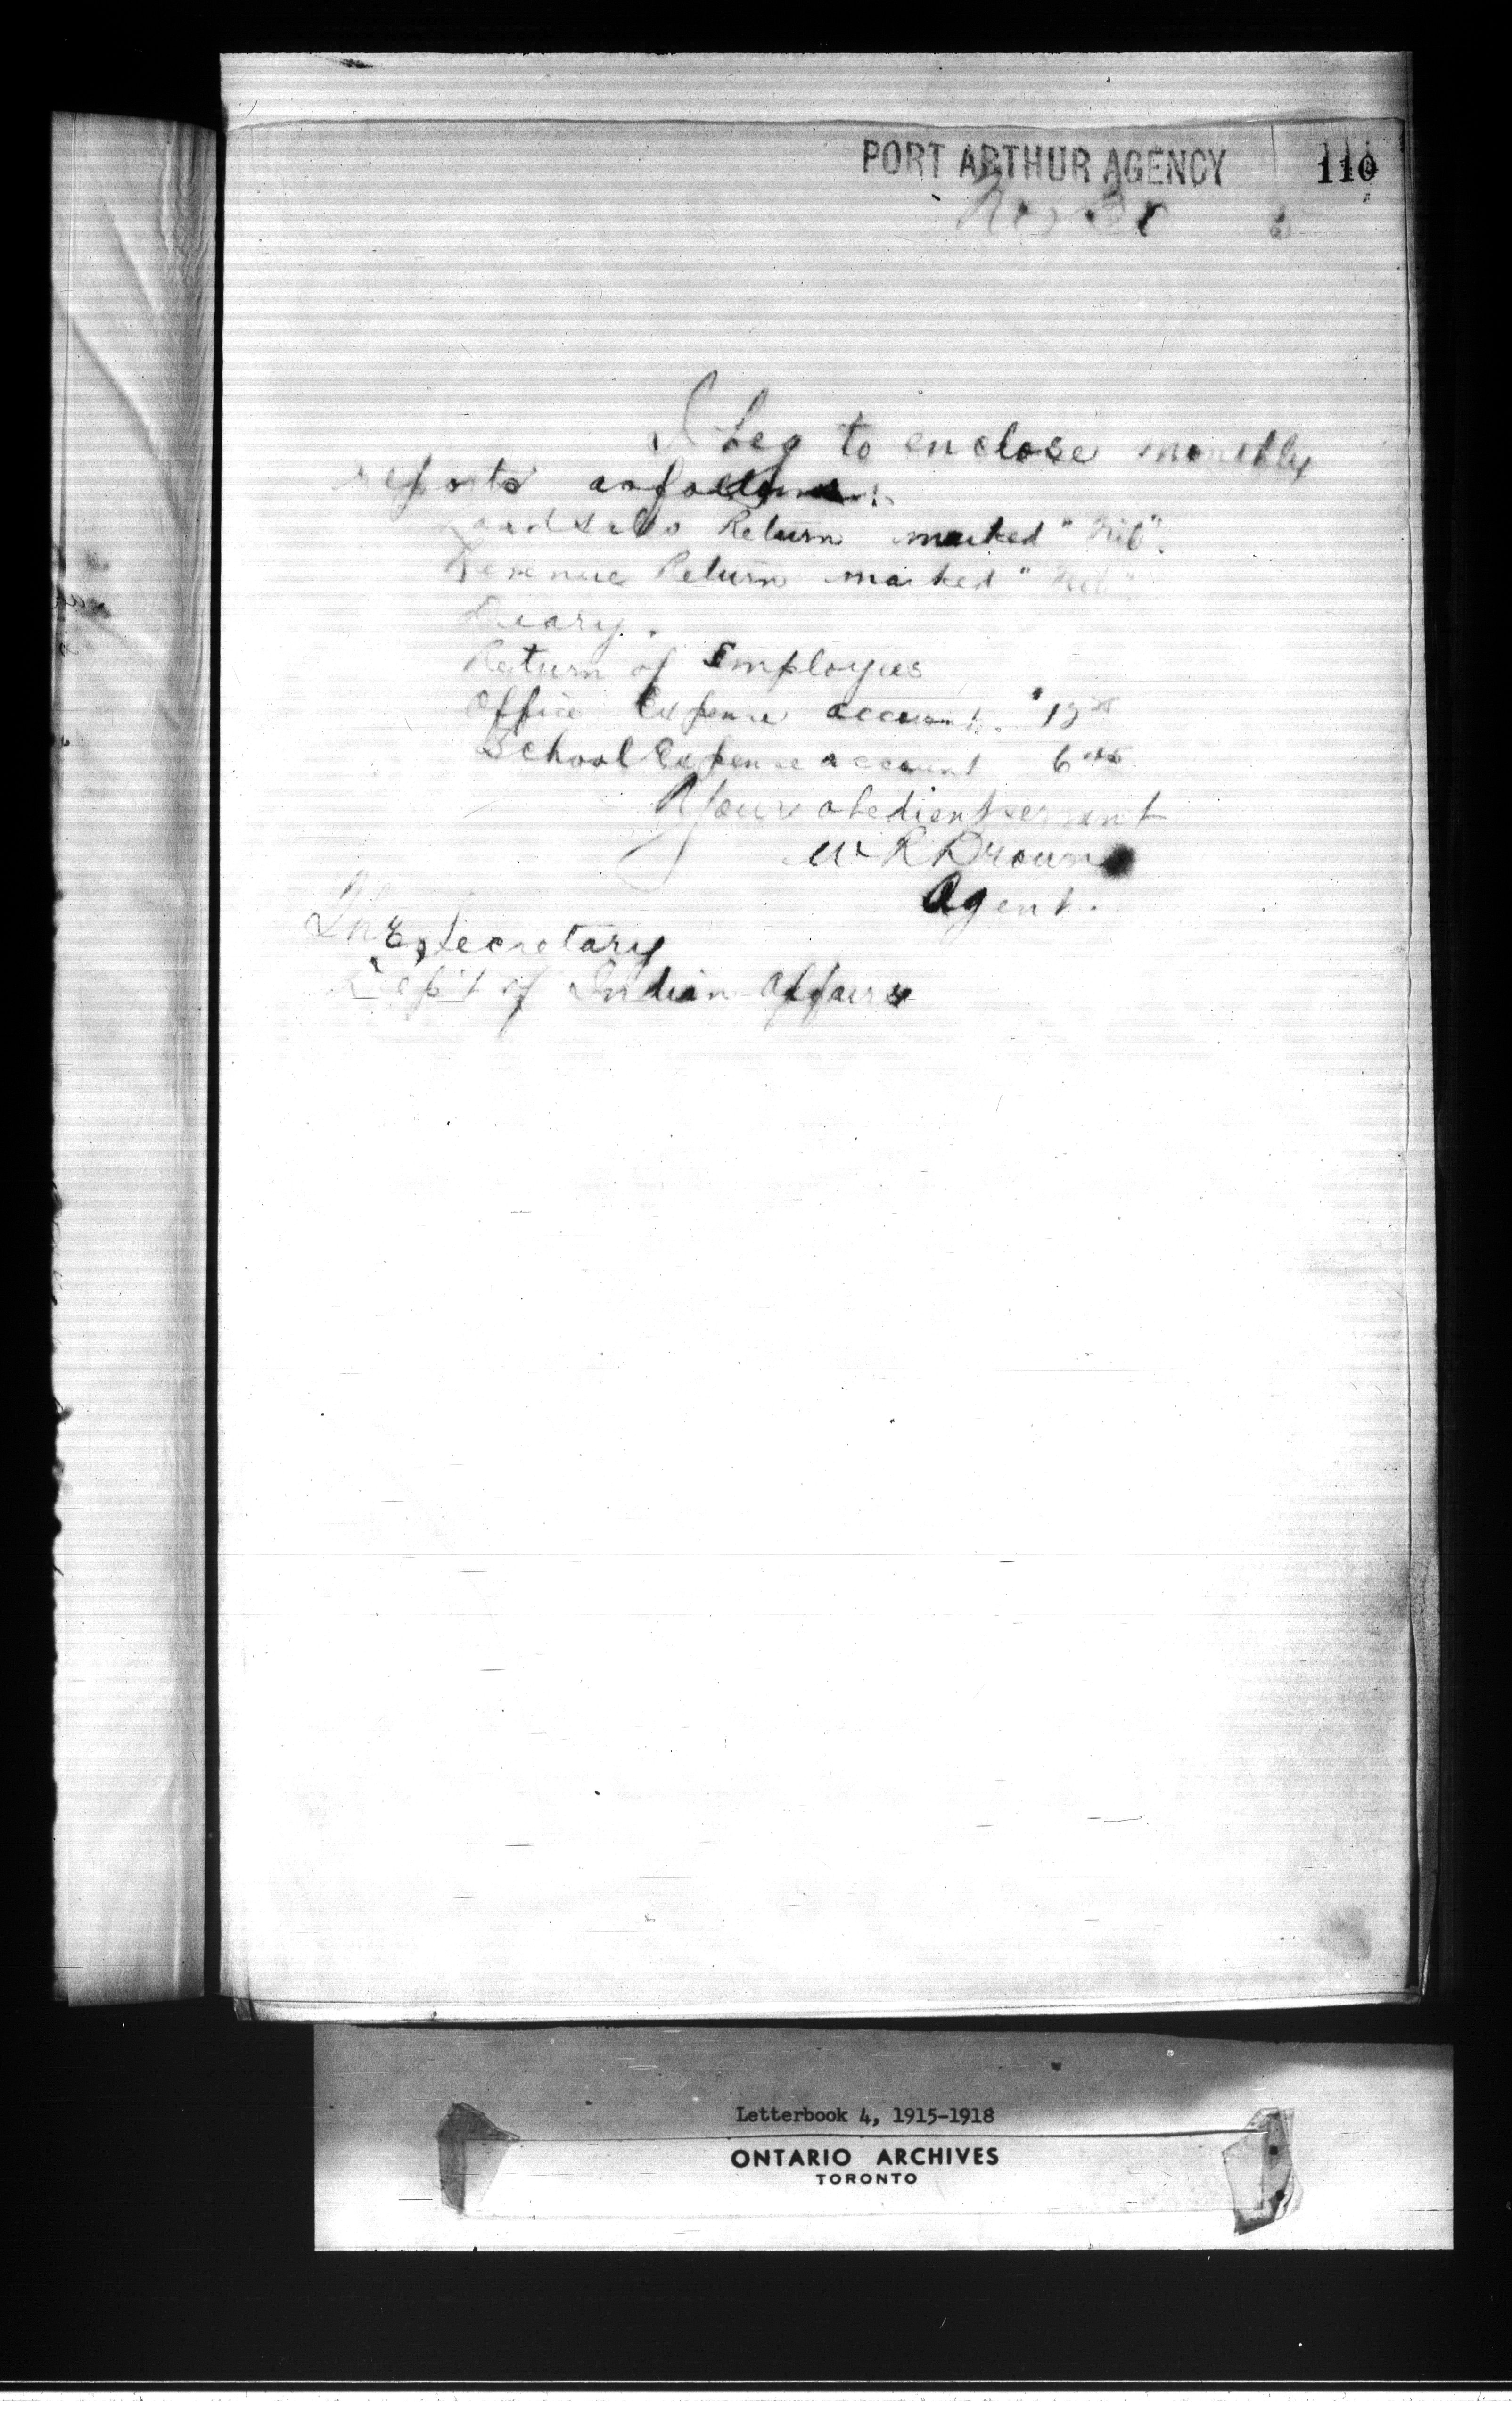 PORT ARTHUR AGENCY 110
Nov 30 5
I beg to enclose monthly
reports as follows:
Land Sales Return marked "Nil".
Revenue Return marked "Nil".
Diary.
Return of Employees
Office Expense account. $13
School Expense account 6
Your obedient servant
W R Brown
Agent.
The Secretary
Dep't of Indian Affairs
Letterbook 4, 1915-1918
ONTARIO ARCHIVES
TORONTO